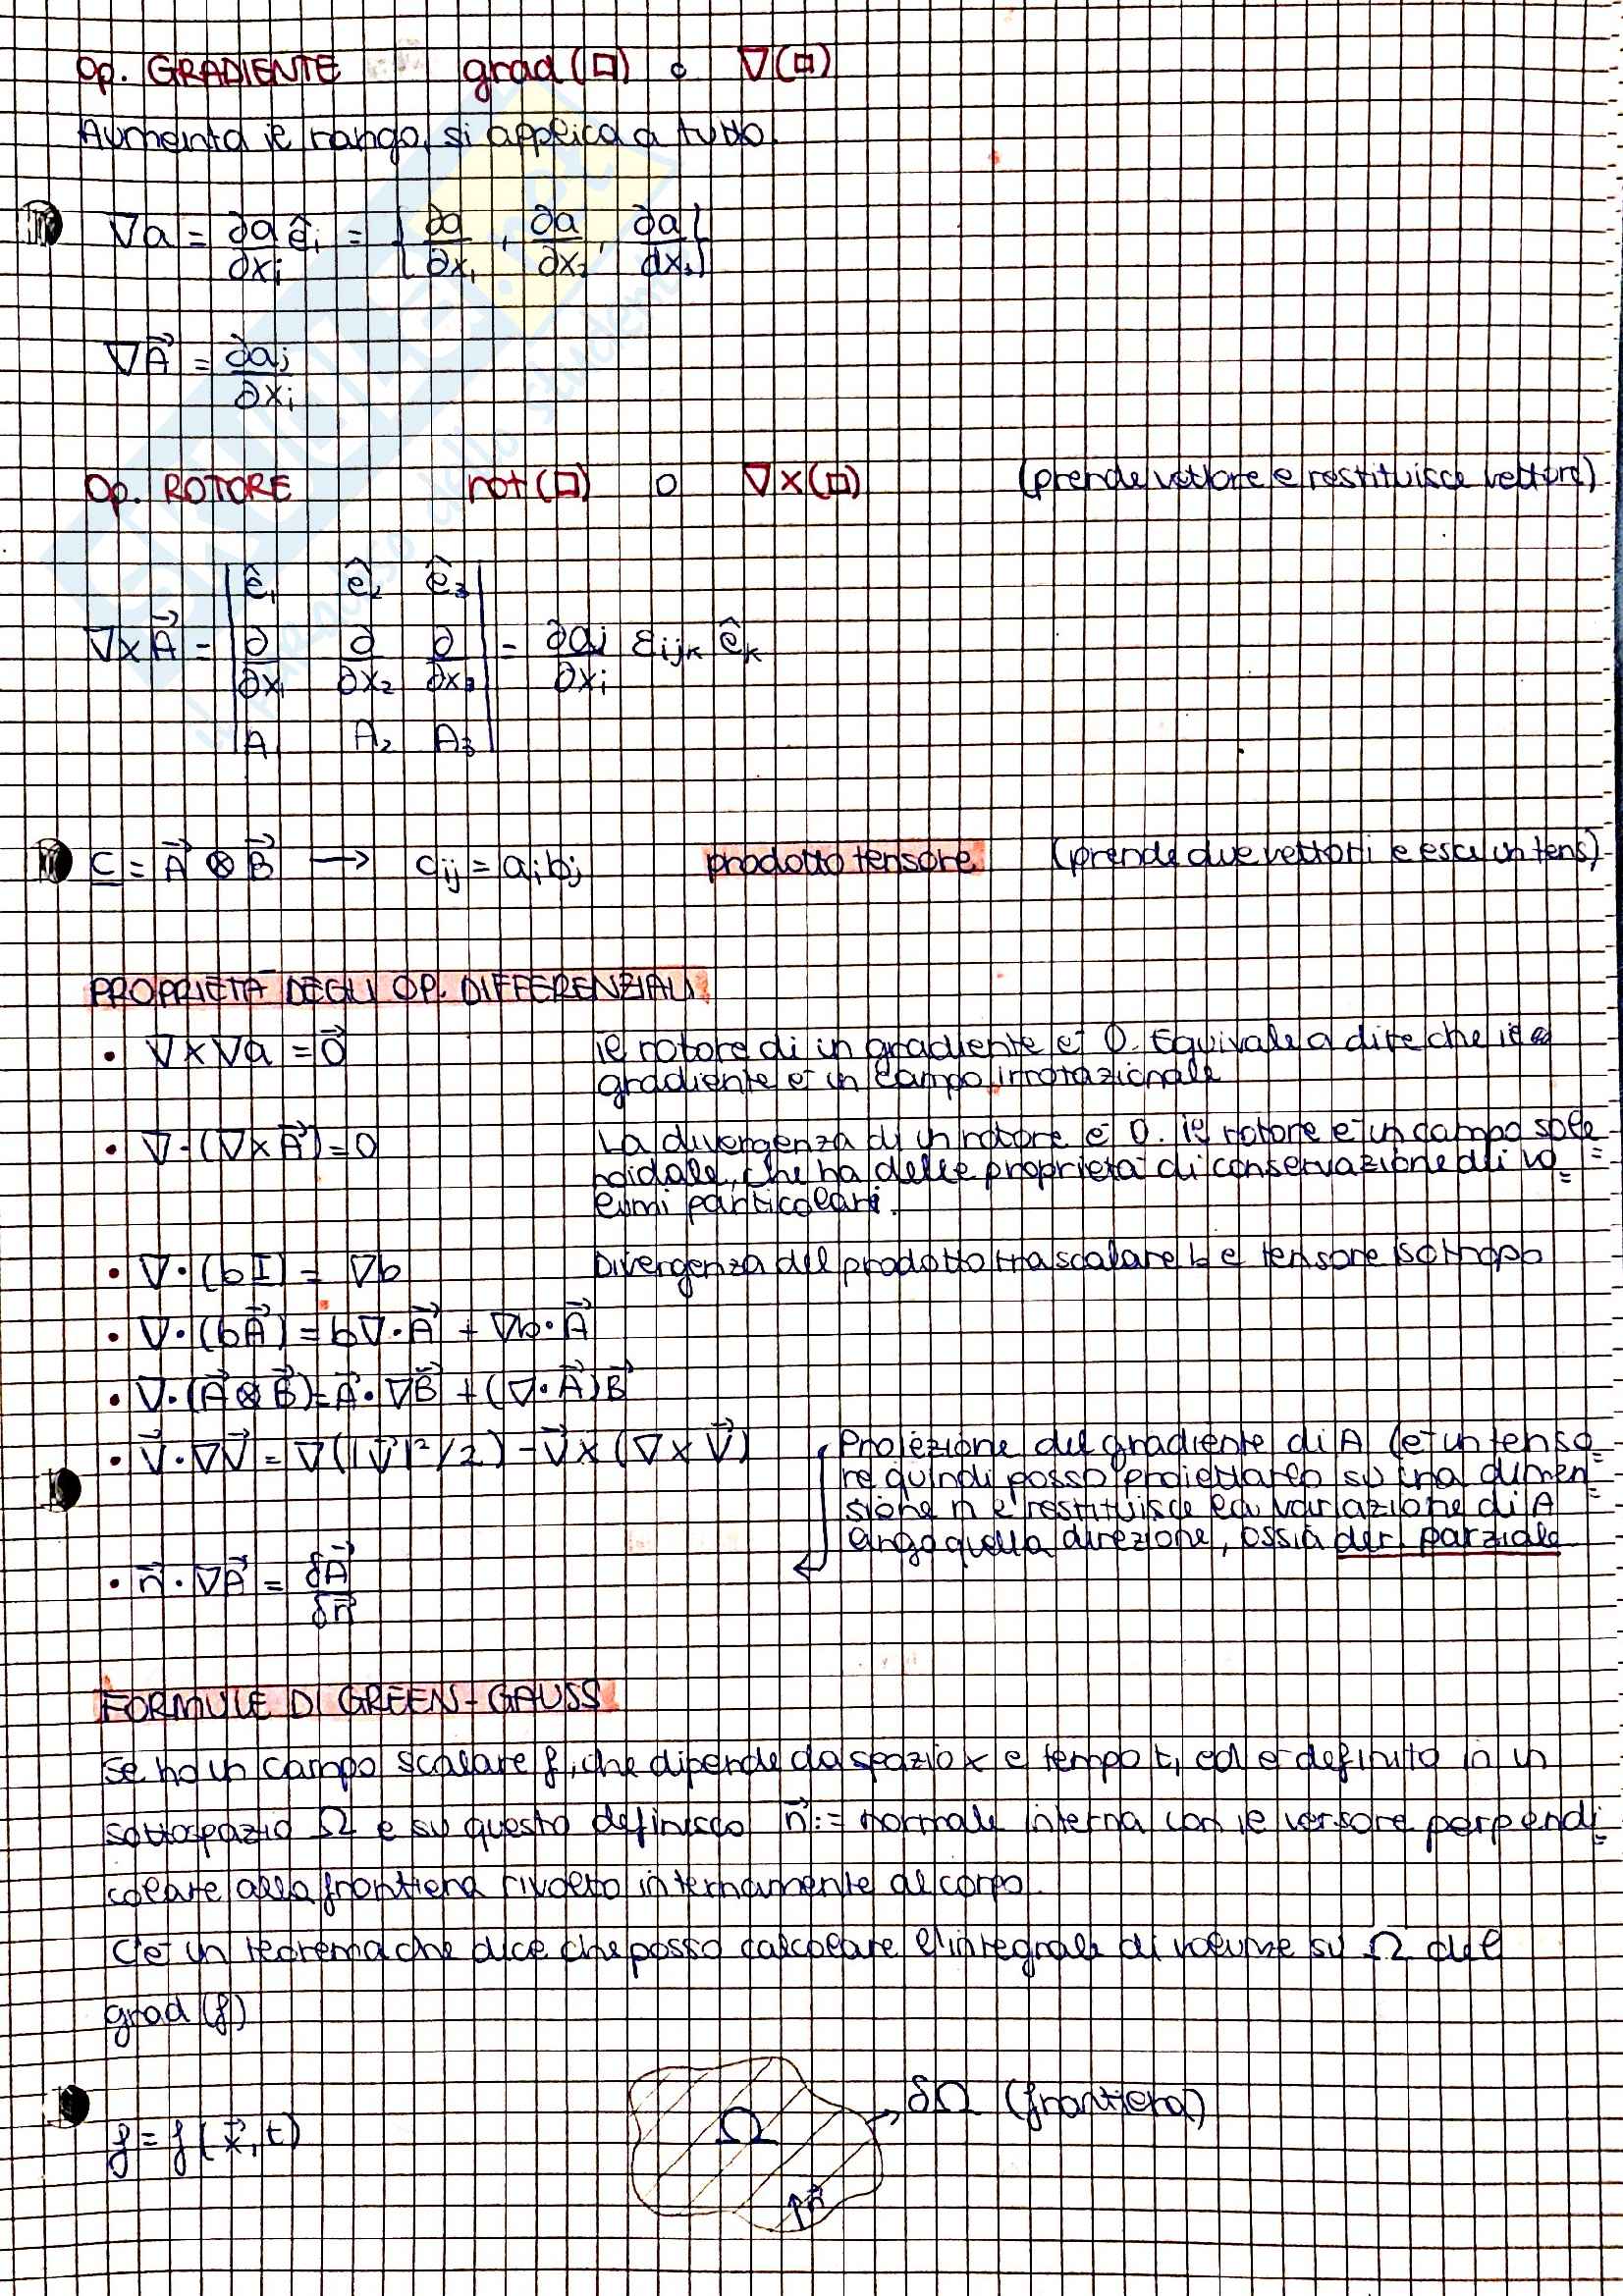 Op. GRADIENTE grad(□) o ∇(□)
Aumenta il rango, si applica a tutto.
∇a = ∂a/∂xᵢ êᵢ = {∂a/∂x₁, ∂a/∂x₂, ∂a/dx₃}
∇A⃗ = ∂aⱼ/∂xᵢ
Op. ROTORE rot(□) o ∇×(□) (prende vettore e restituisce vettore)
∇×A⃗ = | ê₁ ê₂ ê₃ |
| ∂/∂x₁ ∂/∂x₂ ∂/∂x₃ | = ∂aⱼ/∂xᵢ εᵢⱼₖ êₖ
| A₁ A₂ A₃ |
C = A⃗ ⊗ B⃗ → cᵢⱼ = aᵢbⱼ prodotto tensore (prende due vettori e esce un tens)
PROPRIETÀ DEGLI OP. DIFFERENZIALI
• ∇×∇a = 0⃗ il rotore di un gradiente è 0. Equivale a dire che il
gradiente è un campo irrotazionale
• ∇·(∇×A⃗) = 0 La divergenza di un rotore è 0. il rotore è un campo sole
noidale, che ha delle proprietà di conservazione di vo=
lumi particolari.
• ∇·(bI) = ∇b Divergenza del prodotto tra scalare b e tensore isotropo
• ∇·(bA⃗) = b∇·A⃗ + ∇b·A⃗
• ∇·(A⃗⊗B⃗) = A⃗·∇B⃗ + (∇·A⃗)B⃗
• V⃗·∇V⃗ = ∇(|V⃗|²/2) - V⃗×(∇×V⃗)
Proiezione del gradiente di A (è un tenso=
re quindi posso proiettarlo su una dimen=
sione n e restituisce la variazione di A
lungo quella direzione, ossia der. parziale
• n⃗·∇A⃗ = δA⃗/δn⃗
FORMULE DI GREEN-GAUSS
Se ho un campo scalare f, che dipende da spazio x e tempo t, ed è definito in un
sottospazio Ω e su questo definisco n⃗ := normale interna con il versore perpendi=
colare alla frontiera rivolto internamente al corpo.
C'è un teorema che dice che posso calcolare l'integrale di volume su Ω del
grad(f)
f = f(x⃗, t)
Ω
δΩ (frontiera)
n⃗